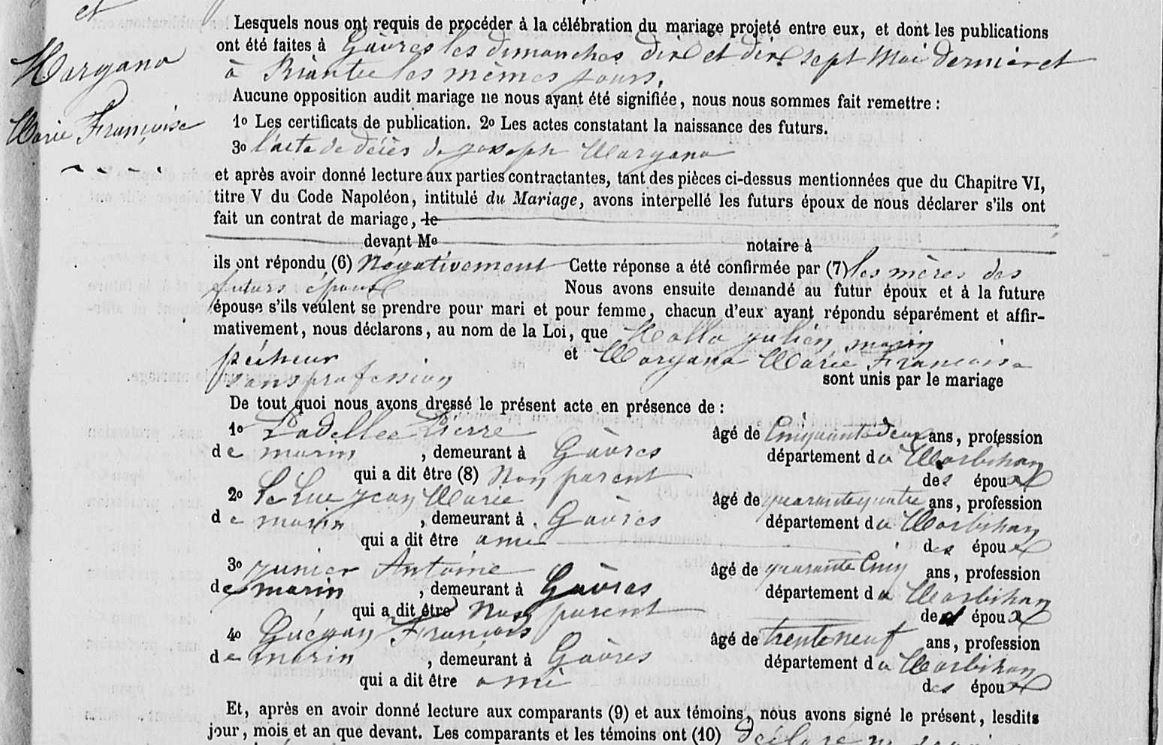 et
Lesquels nous ont requis de procéder à la célébration du mariage projeté entre eux, et dont les publications
ont été faites à Gâvres les dimanches dix et dix sept Mai dernier et
Margana
à Riantec les mêmes jours,
Aucune opposition audit mariage ne nous ayant été signifiée, nous nous sommes fait remettre :
Marie Françoise
1o Les certificats de publication. 2o Les actes constatant la naissance des futurs.
3o l'acte de décès de Joseph Margana
et après avoir donné lecture aux parties contractantes, tant des pièces ci-dessus mentionnées que du Chapitre VI,
titre V du Code Napoléon, intitulé du Mariage, avons interpellé les futurs époux de nous déclarer s'ils ont
fait un contrat de mariage, le
devant Me notaire à
ils ont répondu (6) Négativement Cette réponse a été confirmée par (7) les mères des
futurs époux Nous avons ensuite demandé au futur époux et à la future
épouse s'ils veulent se prendre pour mari et pour femme, chacun d'eux ayant répondu séparément et affir-
mativement, nous déclarons, au nom de la Loi, que Julien marin
pêcheur et Margana Marie Françoise
sans profession sont unis par le mariage
De tout quoi nous avons dressé le présent acte en présence de :
1o Ladellee Pierre âgé de Cinquante deux ans, profession
de marin , demeurant à Gâvres département du Morbihan
qui a dit être (8) Non parent des époux
2o Le Luc Jean Marie âgé de quarante quatre ans, profession
de marin , demeurant à Gâvres département du Morbihan
qui a dit être ami des époux
3o Junier Antoine âgé de quarante Cinq ans, profession
de marin , demeurant à Gâvres département du Morbihan
qui a dit être Non parent des époux
4o Guégan François âgé de trente neuf ans, profession
de marin , demeurant à Gâvres département du Morbihan
qui a dit être ami des époux
Et, après en avoir donné lecture aux comparants (9) et aux témoins, nous avons signé le présent, lesdits
jour, mois et an que devant. Les comparants et les témoins ont (10) déclaré